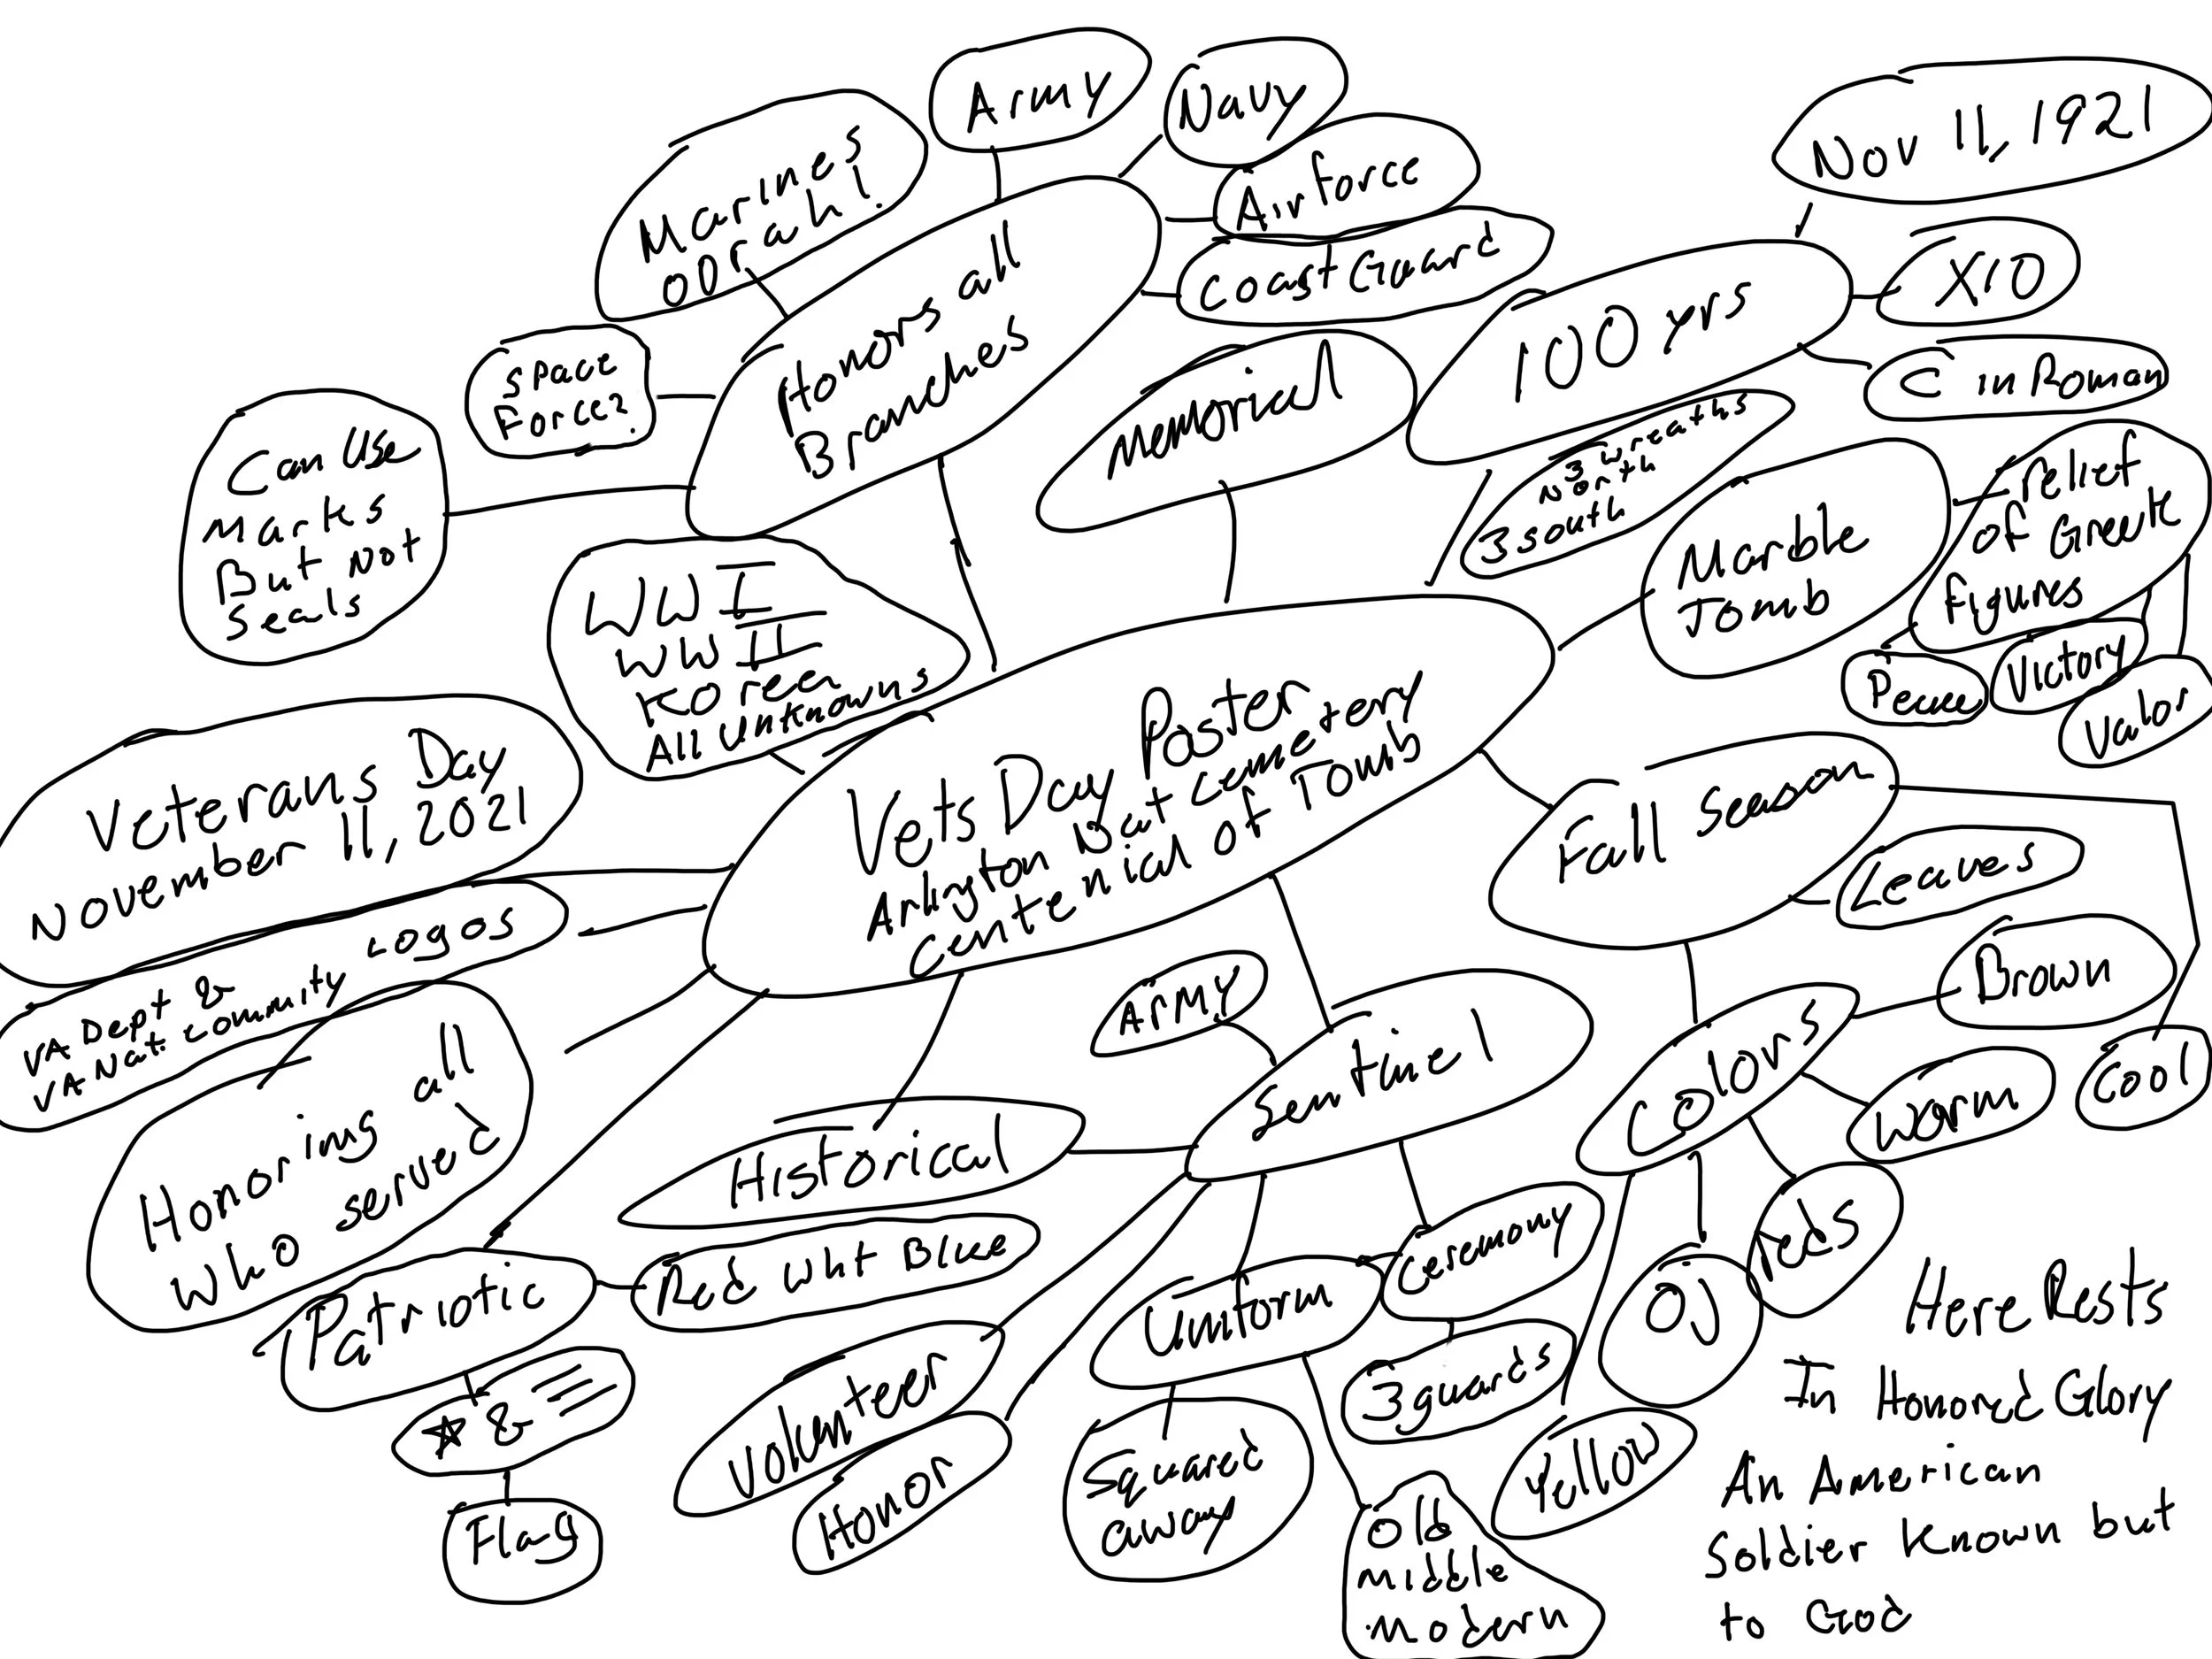 Army
Navy
Marines
oorah!
Airforce
Coast Guard
Nov 11, 1921
X10
C in Roman
100 yrs
Honors all
Branches
Space
Force?
Can Use
Marks
But Not
Seals
Memorial
3 wreaths
North
3 south
Marble
Tomb
relief
of Greek
figures
Peace
Victory
Valor
WW I
WW II
Korea
All Unknowns
Veterans Day
November 11, 2021
Vets Day Poster
Arlington Nat Cemetery
Centenial of Tomb
Fall Season
Leaves
Brown
Cool
Warm
Colors
reds
OJ
Yellow
Logos
VA Dept &
VA Nat. Community
Honoring all
who served
Army
Sentinel
Historical
Red Wht Blue
Patriotic
★ &
Flag
Volunteer
Honor
Uniform
Ceremony
3 guards
Squared
away
Old
Middle
Modern
Here Rests
In Honored Glory
An American
Soldier Known but
to God